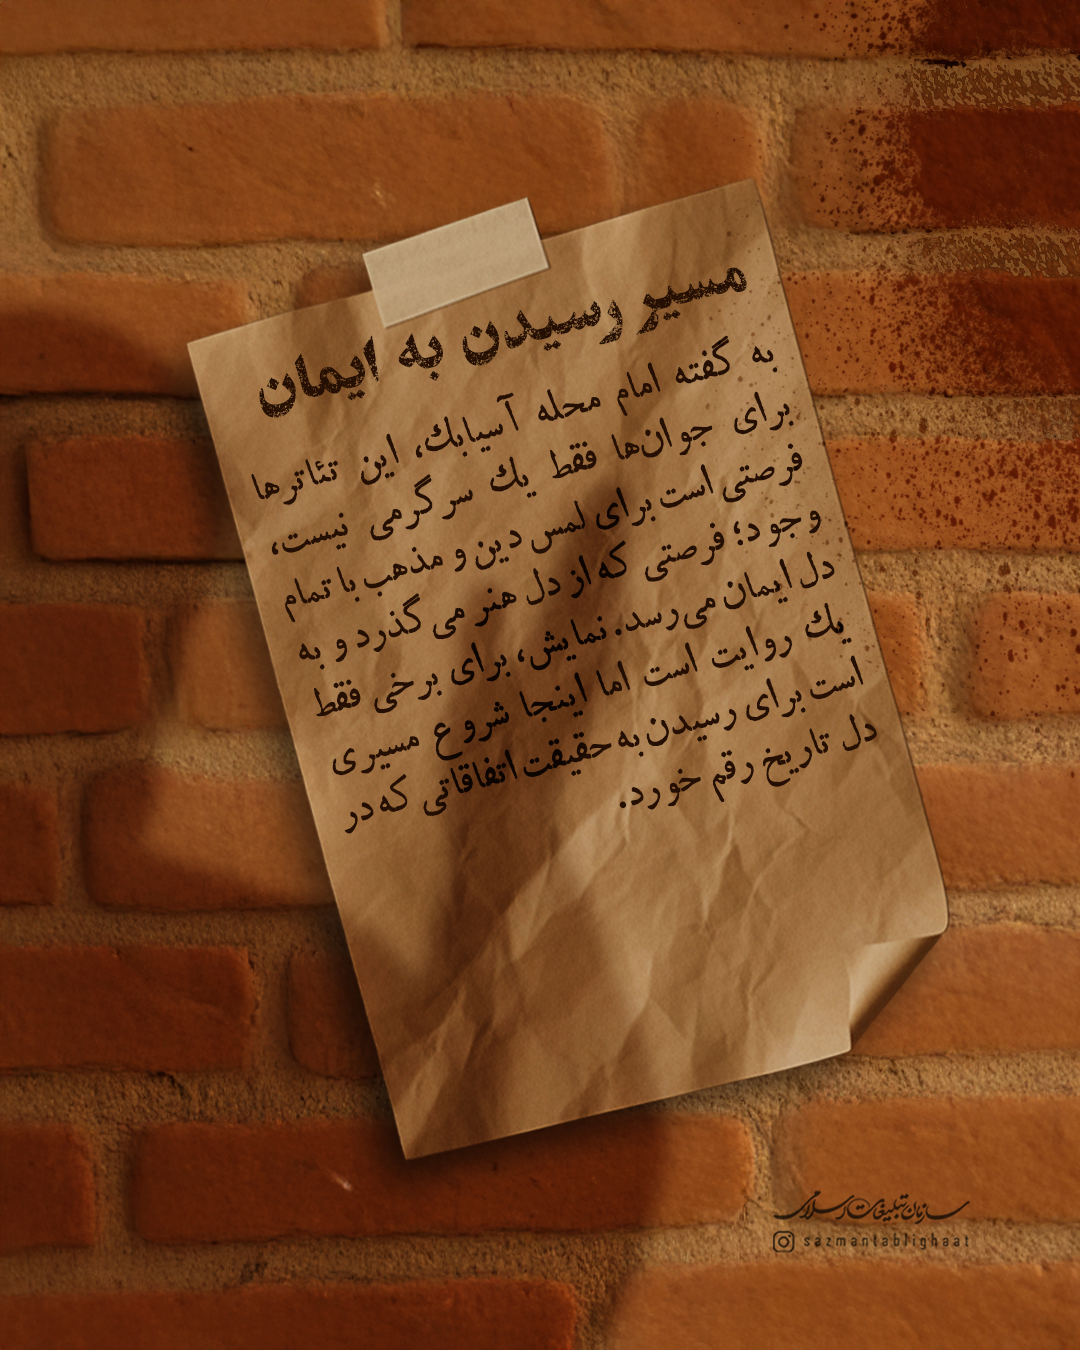 مسیر رسیدن به ایمان
به گفته امام محله آسیابک، این تئاترها
برای جوان‌ها فقط یک سرگرمی نیست،
فرصتی است برای لمس دین و مذهب با تمام
وجود؛ فرصتی که از دل هنر می گذرد و به
دل ایمان می‌رسد. نمایش، برای برخی فقط
یک روایت است اما اینجا شروع مسیری
است برای رسیدن به حقیقت اتفاقاتی که در
دل تاریخ رقم خورد.
سازمان تبلیغات اسلامی
sazmantablighaat